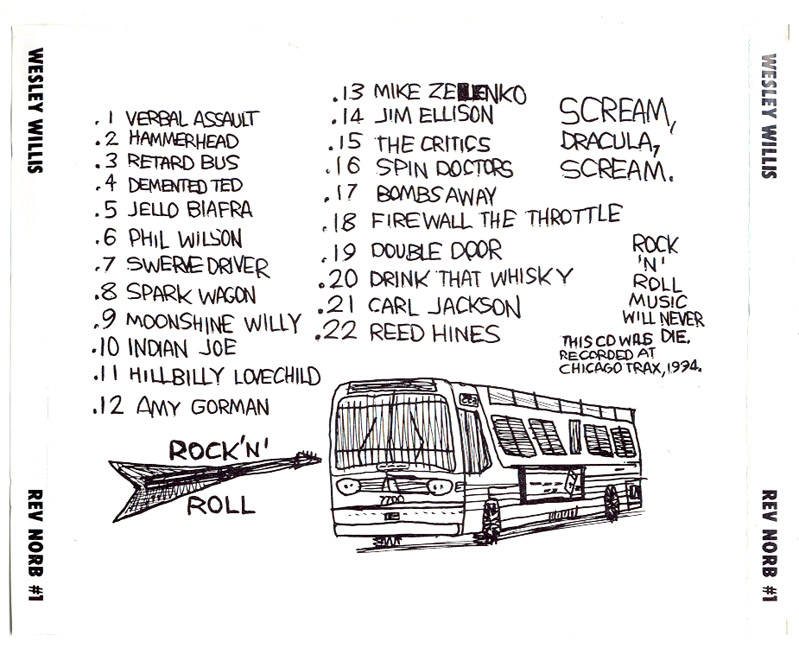 WESLEY WILLIS
REV NORB #1
.1 VERBAL ASSAULT
.2 HAMMERHEAD
.3 RETARD BUS
.4 DEMENTED TED
.5 JELLO BIAFRA
.6 PHIL WILSON
.7 SWERVE DRIVER
.8 SPARK WAGON
.9 MOONSHINE WILLY
.10 INDIAN JOE
.11 HILLBILLY LOVECHILD
.12 AMY GORMAN
.13 MIKE ZELENKO
.14 JIM ELLISON
.15 THE CRITICS
.16 SPIN DOCTORS
.17 BOMBS AWAY
.18 FIREWALL THE THROTTLE
.19 DOUBLE DOOR
.20 DRINK THAT WHISKY
.21 CARL JACKSON
.22 REED HINES
SCREAM,
DRACULA,
SCREAM.
ROCK
'N'
ROLL
MUSIC
WILL NEVER
DIE.
THIS CD WAS
RECORDED AT
CHICAGO TRAX, 1994.
ROCK 'N'
ROLL
7200
WESLEY WILLIS
REV NORB #1